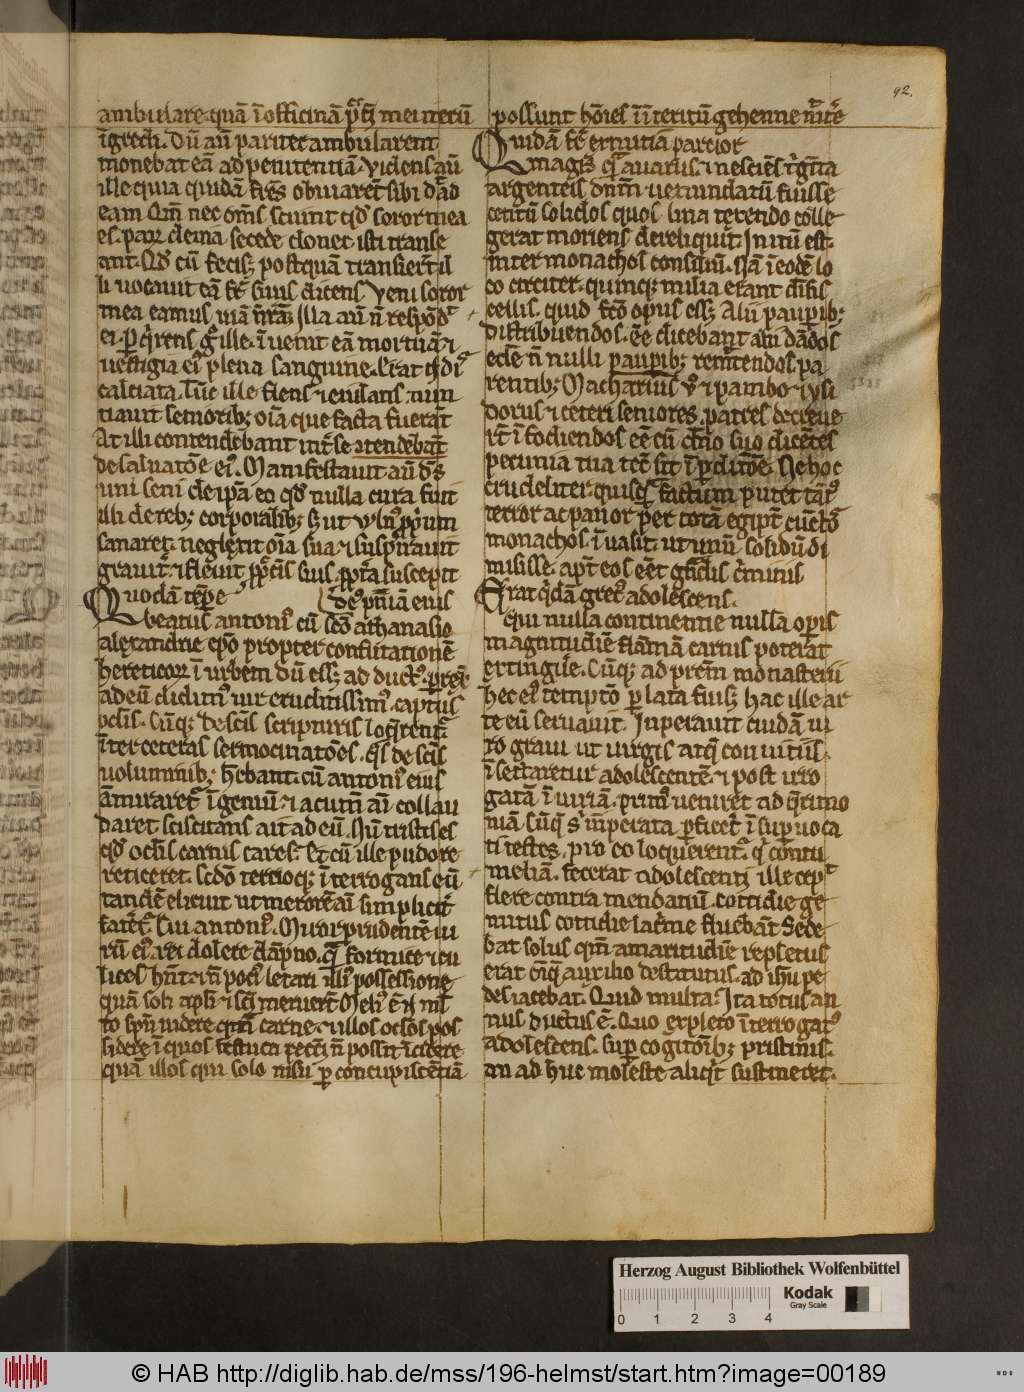 92.
ambulare. quā ī officinā p̄ꝑti mei iterū
īgredi. Dū aū pariter ambularent
monebat eā ad penitentiā. Videns aū
ille quia quidā fr̄es obuiarēt sibi d̄ ad
eam Qm̄ nec om̄s sciunt qd̓ soror mea
es. paululum secede donec isti transe
ant. Qd̓ cū fecisꝫ postquā transierūt il
li uocauit eā fr̄ suus dicens Veni soror
mea eamus uiā nr̄aꝫ Illa aū n̄ respōdꝫ
ei. ꝑqͥrens gͦ ille. īuenit eā mortuā ⁊
uestigia eiꝰ plena sanguine. Erat qͥdē dis
calciata. Tūc ille flens ⁊ eiulans. nun
tiauit seniorib; oīa que facta fuerāt
At illi contendebant int̓ se
de saluatōe eiꝰ. Manifestauit aū d̄s
uni seni de ip̄a eo qd̓ nulla cura fuit
illi de reb; corporalib; sꝫ ut uln̓ꝰ ꝓpͥum
sanaret. neglexit oīa sua ⁊ suspirauit
grauit̓ ⁊ fleuit p̄ctīs suis. ꝓpt̓a suscepit
Quodā tēpore deꝰ pn̄iā eius
beatus antoniꝰ cū sc̄o athanasio
alexandrie ep̄o propter confutationē
hereticoꝝ ī urbem dū essꝫ ad ductꝰ. ꝑrex̄
ad eū didimꝰ uir eruditissimꝰ. captus
oc̄lis. Cūqꝫ de sc̄is scripturis loq̄rentur
īter ceteras sermocinatōes. q̄s de sc̄is
uoluminib; hēbant. cū antoniꝰ eius
āmirarēt̓ īgeniū ⁊ acumē aī collau
daret sciscitans ait ad eū. Nū tristis es
qd̓ oc̄lis carnis cares. Et cū ille pudore
reticeret. sc̄do tercioqꝫ īterrogans eū
tandē elicuit ut merorē aī simplicit̓
fateret̓. Cui antoniꝰ. Miror prudentē ui
rū eiꝰ rei dolere dāpno. q̄ formice ⁊ cu
lices hn̄t ⁊ n̄ pociꝰ letari illiꝰ possessione
quā soli apl̄i ⁊ sc̄i meruer̄t Meliꝰ ē n̄ mͣl
to spū uidere qͣm carne ⁊ illos oc̄los pos
sidere ī quos festuca pecc̄i n̄ possit īcidere
quā illos qui solo uisu ꝑ concupiscētiā
possunt hoīes ī īteritū gehenne mit̓e
Quidā fr̄ ex nitria parcior
magis qͣ auarus. ⁊ nesciēs trīginta
argenteis dn̄m uenundatū fuisse
centū solidos quos lina texendo colle
gerat moriens dereliquit. Initū est
inter monachos consiliū. Nā ī eodē lo
co circiter. quinqꝫ milia erant diuisis
cellis. quid fc̄o opus essꝫ. Alii pauꝑib;
distribuendos. eē dicebant alii dādos
ecclē n̄ nulli pauꝑib; remittendos pa
rentib; Macharius ū ⁊ pambo ⁊ ysi
dorus ⁊ ceteri seniores. patres decreue
rt̄ īfodiendos eē cū dn̄o suo dicētes
pecunia tua tecū sit ī ꝑditōe. Ne hoc
crudeliter quisqͣ factum putet tātꝰ
terror ac pauor per totā egiptū cunctos
monachos īuasit. ut unū solidū di
misisse. aput eos eēt gͣndis cͥminis
Erat qͥdā grecꝰ adolescens.
qui nulla continentie nulla oꝑis
magnitudīe flāmā carnis poterat
extinguere. Cūqꝫ ad patrem monasterii
hec eiꝰ temptō ꝑlata fuisꝫ hac ille ar
te eū seruauit. Inperauit cuidā ui
ro graui ut iurgiis atqꝫ conuitiis.
īsectaretur adolescentē ⁊ post irro
gatā īiuriā. primꝰ ueniret ad qͥrimo
niā Cūqꝫ sͥ īperata ꝑficēt̓ īsuper uoca
ti testes. pro eo loquerentͬ qͥ contu
meliā. fecerat adolescenti ille cepit
flere contra mendatiū. cottidie ge
mitus cottidie lacͥme fluebāt Sede
bat solus qm̄ amaritudīe repletus
erat oīqꝫ auxilio destitutus. ad ihū pe
des iacebat. Quid multa Ita totus an
nus ductus ē. Quo expleto īterrogatꝰ
adolescens. super cogitōib; pristinis.
an ad huc moleste aliqͥt sustineret.
Herzog August Bibliothek Wolfenbüttel
0 1 2 3 4
Kodak
Gray Scale
© HAB http://diglib.hab.de/mss/196-helmst/start.htm?image=00189